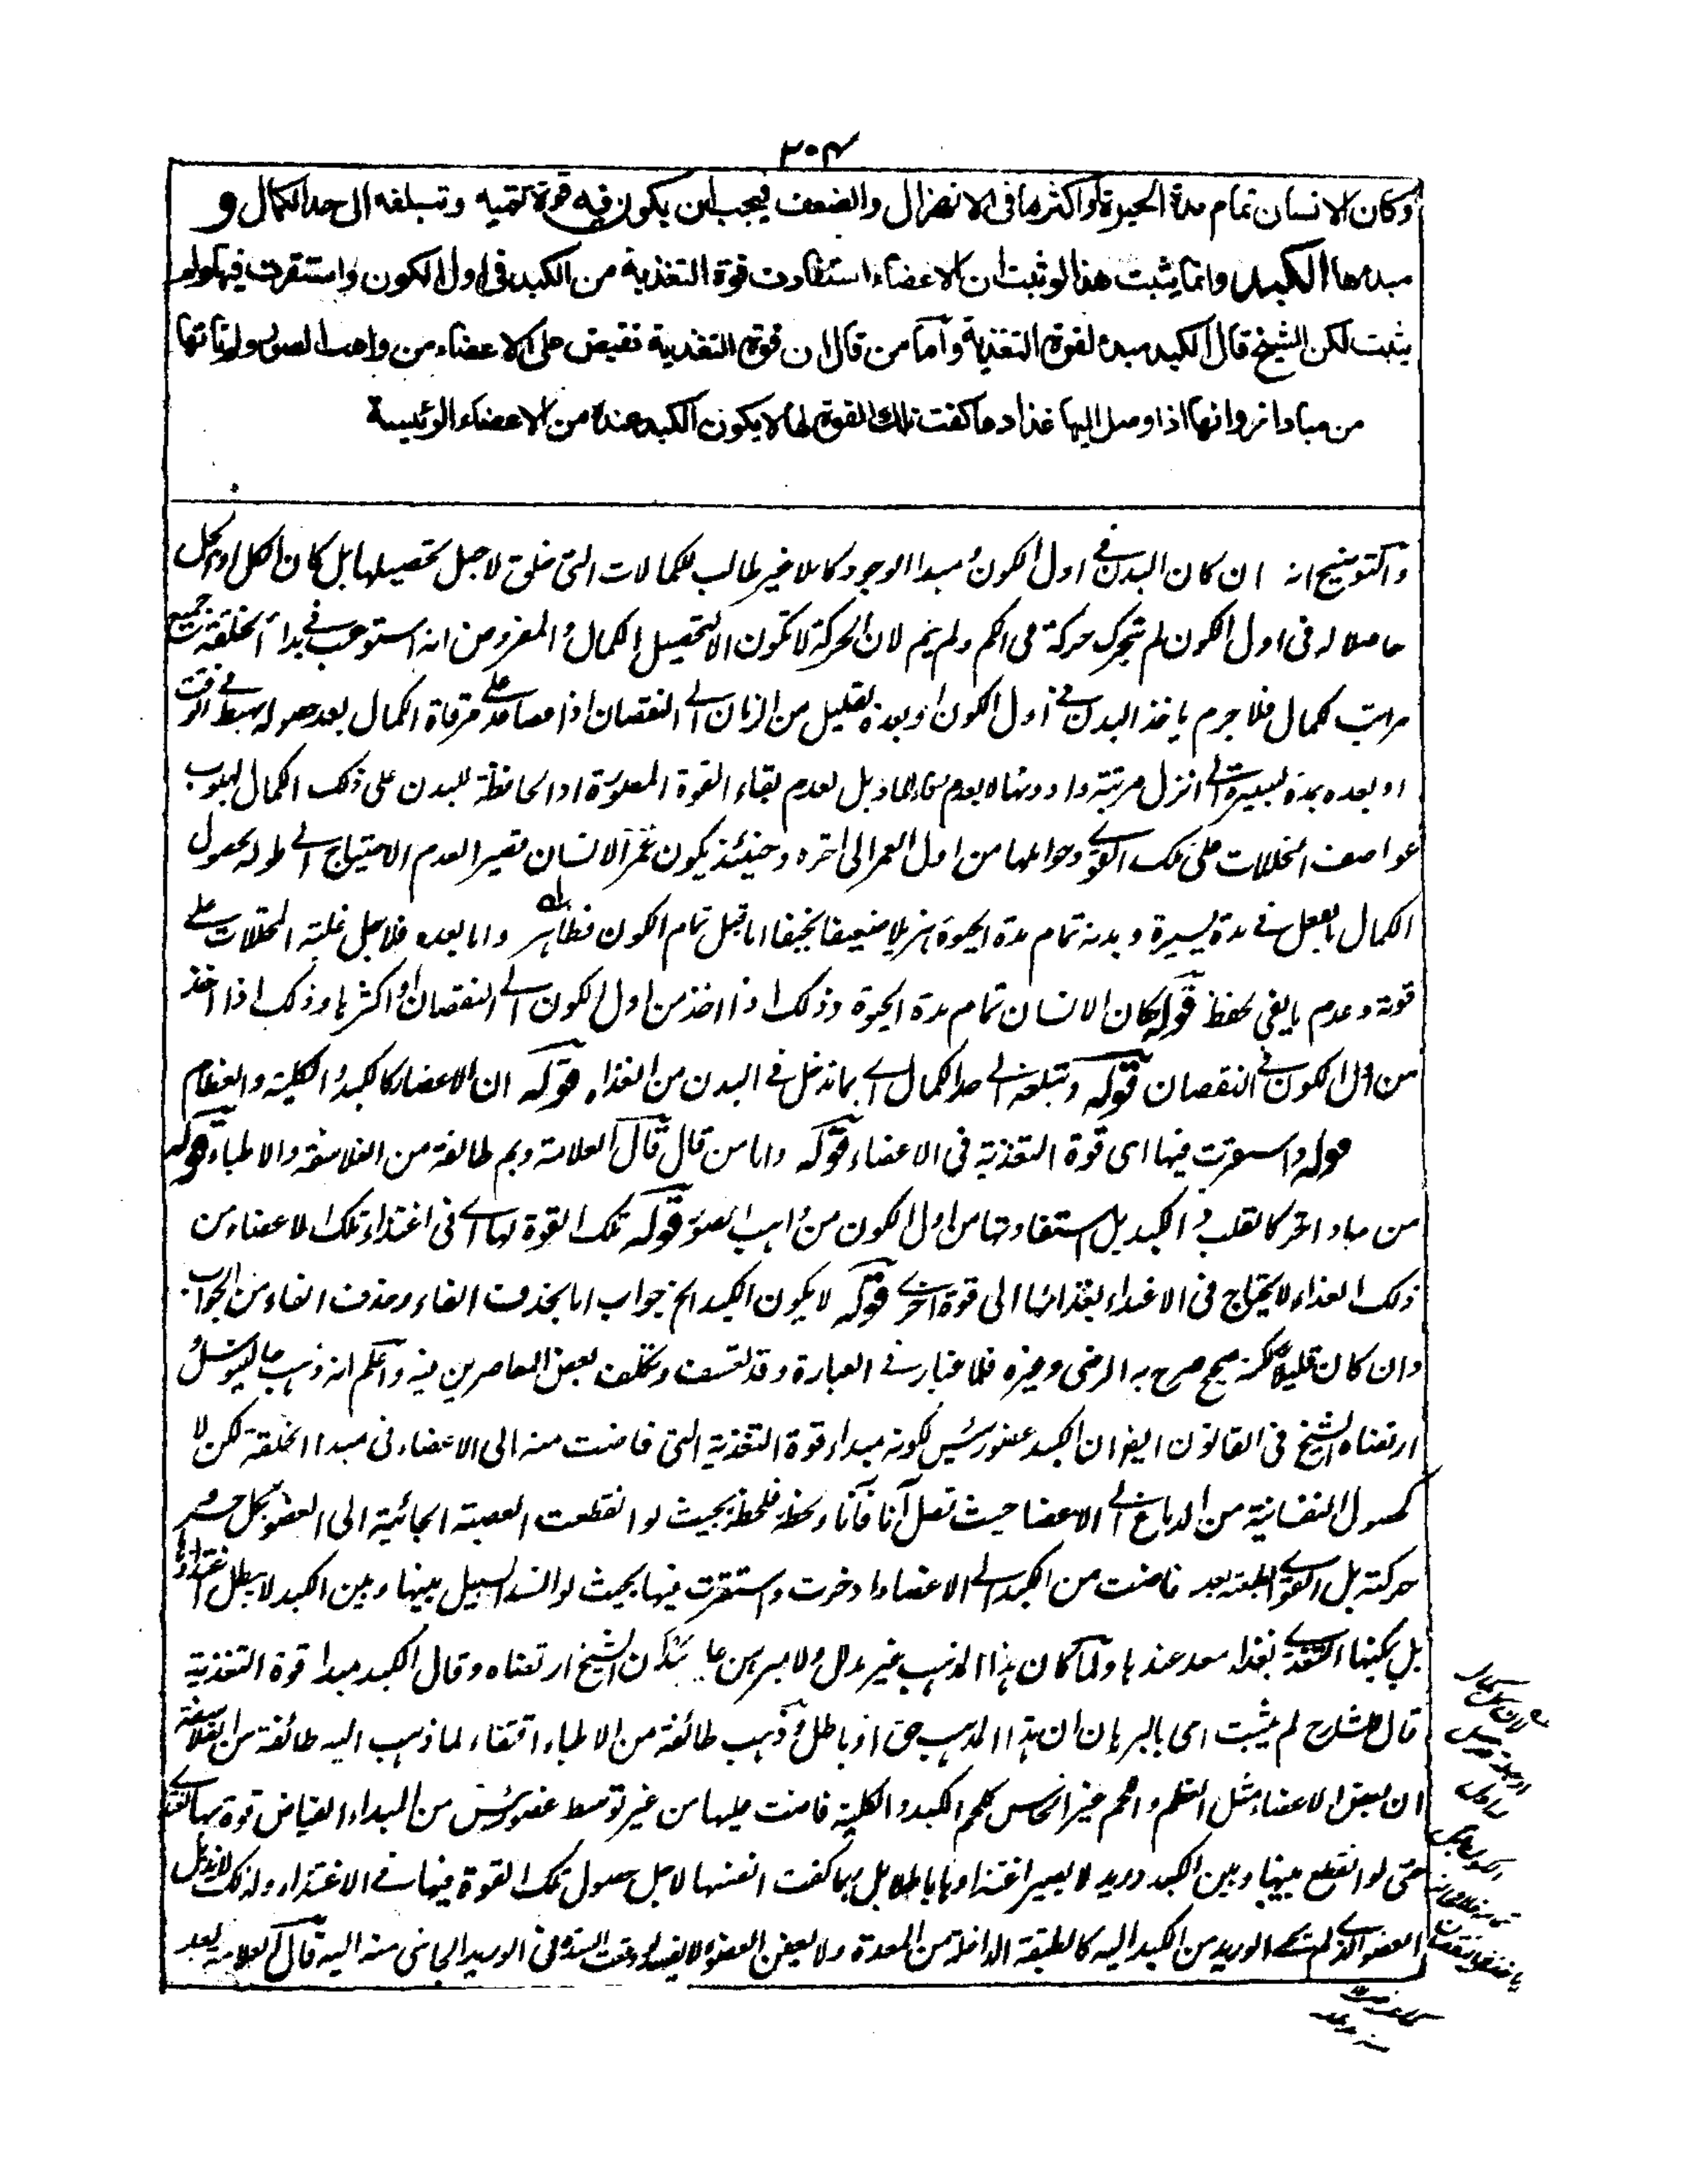 ٢٠٤
وكان الانسان تمام مدة الحيوة او اكثرها فى الانهزال والضعف فيجب ان يكون فيه قوة تنميه وتبلغه الى حد الكمال و
مبدءها الكبد وانما يثبت هذا لو ثبت ان الاعضاء استفادت قوة التغذية من الكبد فى اول الكون واستقرت فيها ولم
يثبت لكن الشيخ قال الكبد مبدء لقوة التغذية وأما من قال ان قوة التغذية تفيض على الاعضاء من واهب الصور
من مباد اخر وانها اذا وصل اليها غذاءها كفت تلك القوة لها لا يكون الكبد عنده من الاعضاء الرئيسة
والتوضيح انه ان كان البدن فى اول الكون ومبدا الوجود كاملا غير طالب للكمالات التى خلق لاجل تحصيلها بل كان الكل
حاصلا له فى اول الكون لم تتحرك حركة فى الكم ولم ينم لان الحركة لا تكون الا لتحصيل الكمال والمفروض انه استوعب فى بدأ الخلقة جميع
مراتب الكمال فلا جرم ياخذ البدن فى اول الكون او بعده بقليل من الزمان الى النقصان اذا صاعد على مرقاة الكمال بعد حصوله يهبط فى الوقت
او بعده بمدة يسيرة الى انزل مرتبة بل لعدم بقاء القوة المصورة او الحافظة للبدن على ذلك الكمال لهبوب
عواصف المحللات على تلك القوى وحواملها من اول العمر الى اخره وحينئذ يكون عمر الانسان قصيرا لعدم الاحتياج الى طوله لحصول
الكمال بالفعل فى مدة يسيرة وبدنه تمام مدة الحيوة هزيلا ضعيفا نحيفا اما قبل تمام الكون فظاهر واما بعده فلاجل غلبة المحللات على
قوته وعدم ما يفى بحفظ قوله كان الانسان تمام مدة الحيوة وذلك اذا اخذ من اول الكون الى النقصان او اكثرها وذلك اذا اخذ
من اول الكون فى النقصان قوله وتبلغه الى حد الكمال اى بما تدخل فى البدن من الغذاء قوله ان الاعضاء كالكبد والكلية والعظام
قوله واستقرت فيها اى قوة التغذية فى الاعضاء قوله واما من قال قال العلامة وهم طائفة من الفلاسفة والاطباء قوله
من مباد اخر كالقلب والكبد بل استفادتها من اول الكون من واهب الصور قوله تلك القوة لها اى فى اغتذاء تلك الاعضاء من
ذلك الغذاء لا يحتاج فى الاغتذاء بغذائها الى قوة اخرى قوله لا يكون الكبد الخ جواب اما بحذف الفاء وحذف الفاء من الجواب
وان كان قليلا لكنه صحيح صرح به الرضى وغيره فلا غبار فى العبارة وقد تعسف وتكلف بعض المعاصرين فيه واعلم انه ذهب جالينوس و
ارتضاه الشيخ فى القانون ايضا ان الكبد عضو رئيس لكونه مبداء قوة التغذية التى فاضت منه الى الاعضاء فى مبدا الخلقة لكن لا
كحصول النفسانية من الدماغ الى الاعضا حيث تصل آنا فآنا ولحظة فلحظة بحيث لو انقطعت العصبة الجائية الى العضو بطل حسه و
حركته بل القوى فاضت من الكبد الى الاعضاء وادخرت واستقرت فيها بحيث لو انسد السبيل بينها وبين الكبد لا يبطل اغتذاؤها
بل يكفيها بغذاء عندها ولما كان هذا المذهب غير مدلل ولا مبرهن لكن الشيخ ارتضاه وقال الكبد مبدا قوة التغذية
قال الشارح لم يثبت اى بالبرهان ان هذا المذهب حق او باطل وذهب طائفة من الاطباء اقتفاء لما ذهب اليه طائفة من الفلاسفة
ان بعض الاعضاء مثل العظم واللحم غير الحاس كلحم الكبد والكلية فاضت عليها من غير توسط عضو رئيس من المبداء الفياض قوة بها
حتى لو انقطع بينها وبين الكبد وريد لا يصير اغتذاؤها باطلا بل ربما كفت انفسها لاجل حصول تلك القوة فيها فى الاغتذاء ولذلك
العضو الذى لم يجئ الوريد من الكبد اليه كالطبقة الداخلة من المعدة ولا يعفن العضو لو وقعت السدة فى الوريد الجائى منه اليه قال العلامة بعد